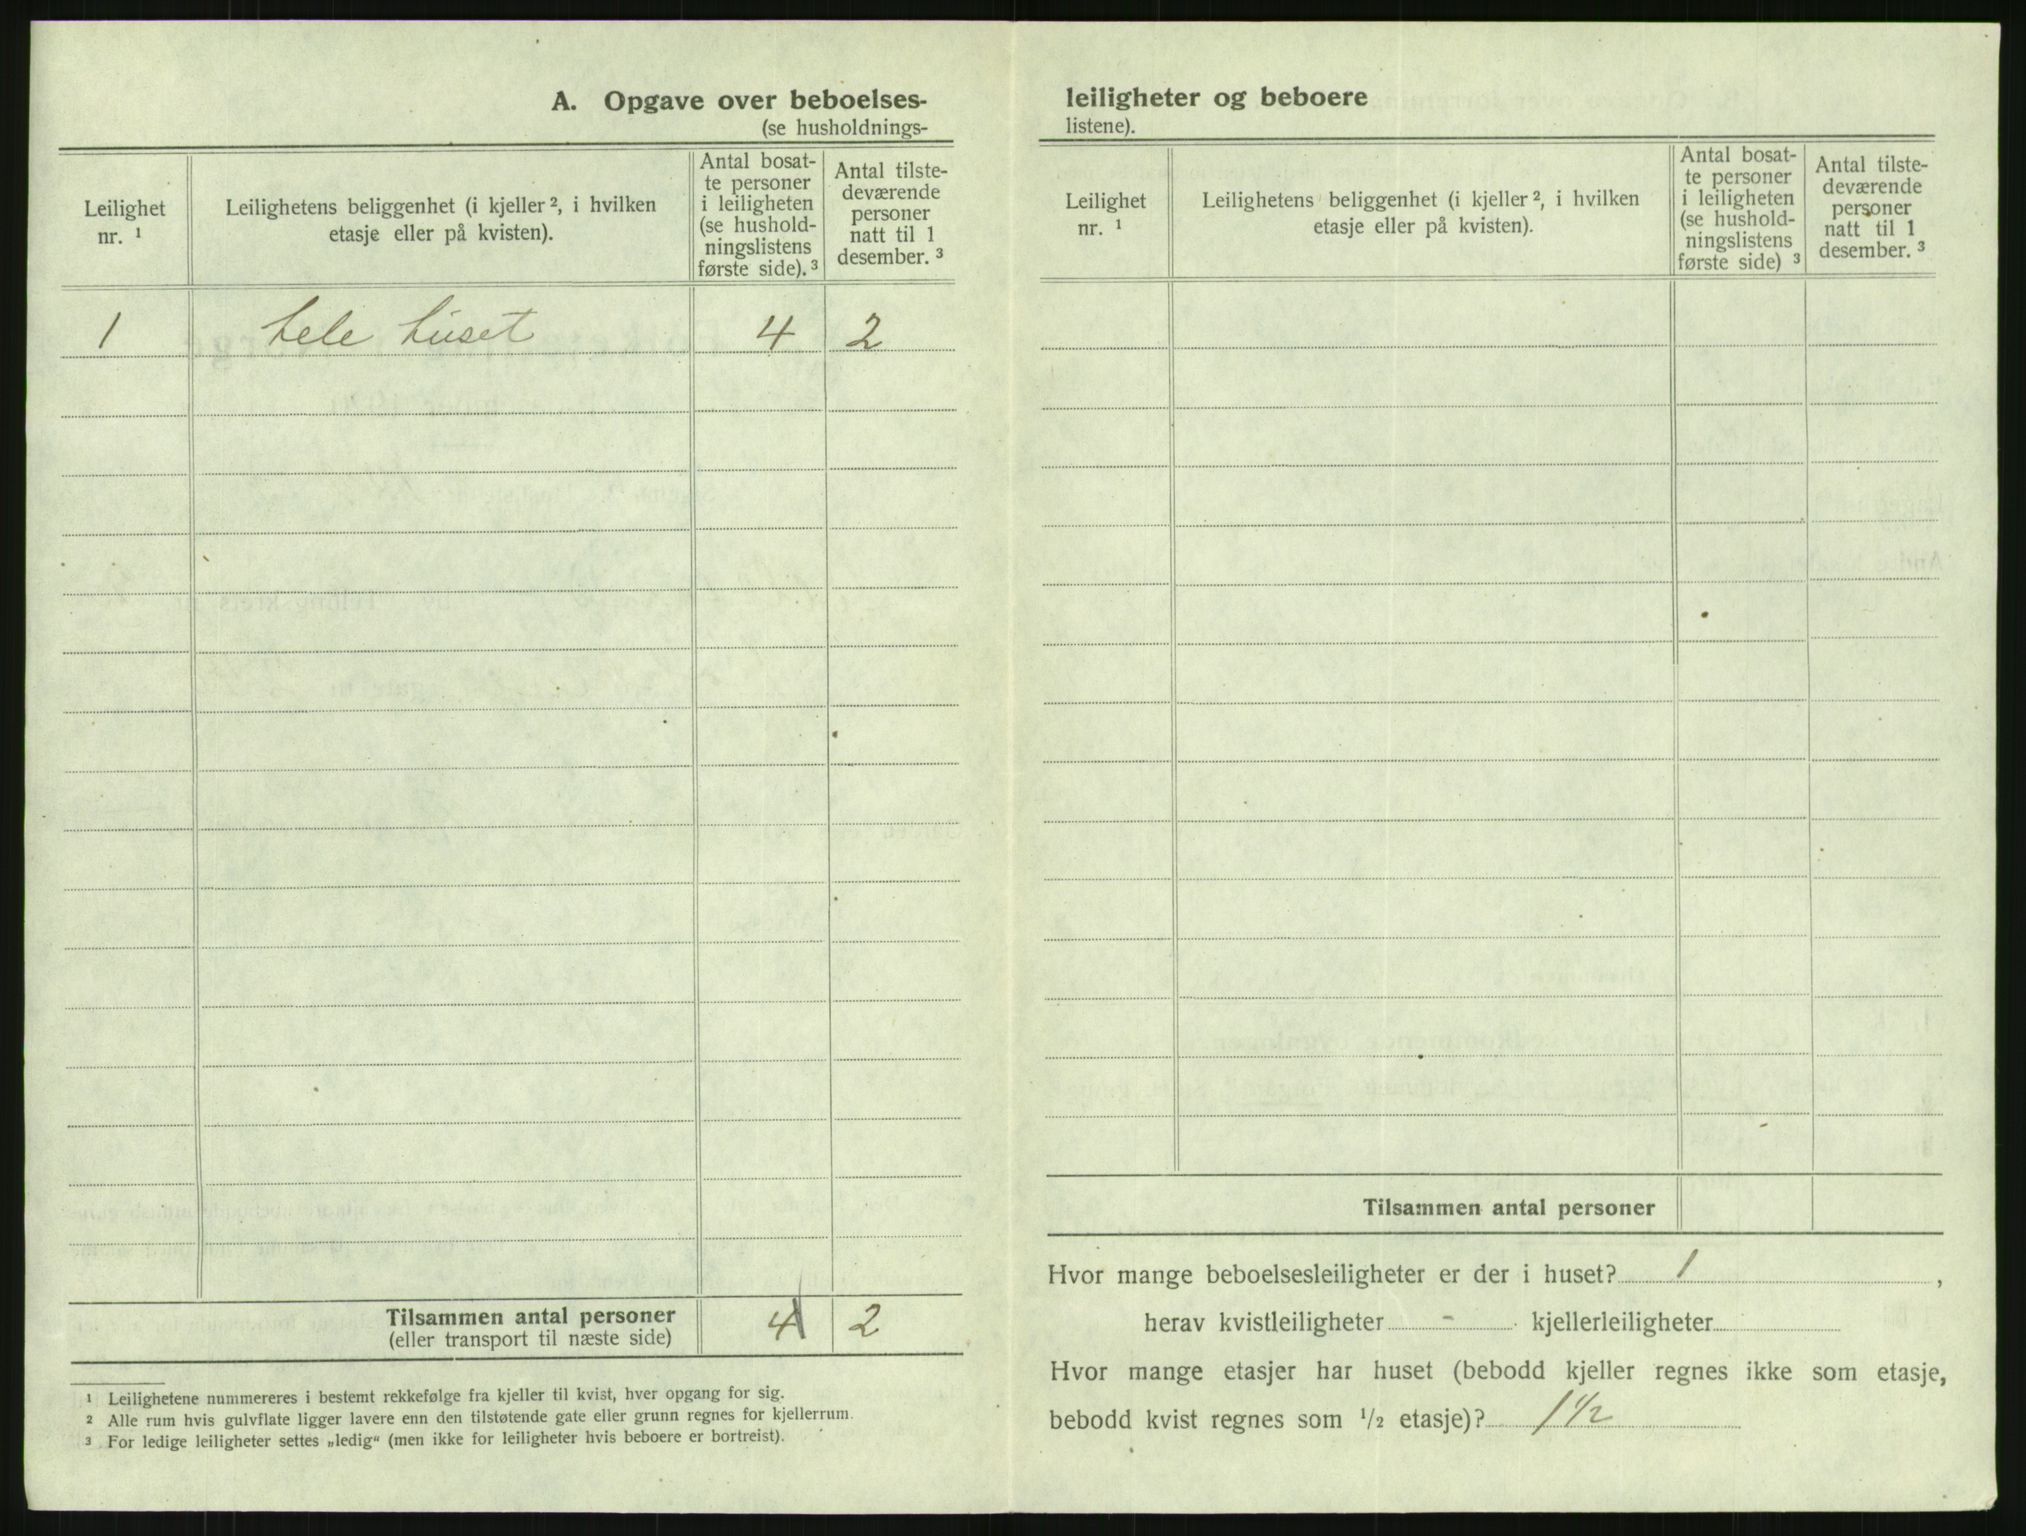 A. Opgave over beboelses-
(se husholdnings-
Leilighet
nr. ¹
Leilighetens beliggenhet (i kjeller ², i hvilken
etasje eller på kvisten).
Antal bosat-
te personer
i leiligheten
(se hushold-
ningslistens
første side). ³
Antal tilste-
deværende
personer
natt til 1
desember. ³
1 hele huset 4 2
Tilsammen antal personer 4 2
(eller transport til næste side)
¹ Leilighetene nummereres i bestemt rekkefølge fra kjeller til kvist, hver opgang for sig.
² Alle rum hvis gulvflate ligger lavere enn den tilstøtende gate eller grunn regnes for kjellerrum.
³ For ledige leiligheter settes „ledig“ (men ikke for leiligheter hvis beboere er bortreist).
leiligheter og beboere
listene).
Leilighet
nr. ¹
Leilighetens beliggenhet (i kjeller ², i hvilken
etasje eller på kvisten).
Antal bosat-
te personer
i leiligheten
(se hushold-
ningslistens
første side) ³
Antal tilste-
deværende
personer
natt til 1
desember. ³
Tilsammen antal personer
Hvor mange beboelsesleiligheter er der i huset? 1 ,
herav kvistleiligheter - kjellerleiligheter
Hvor mange etasjer har huset (bebodd kjeller regnes ikke som etasje,
bebodd kvist regnes som ½ etasje)? 1 ½